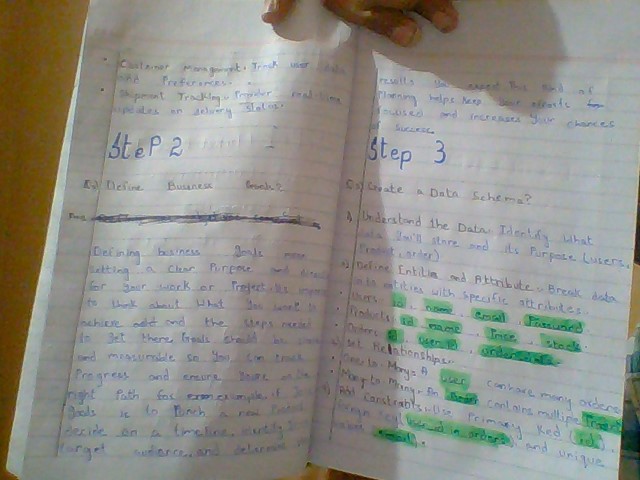 Customer Management: Track user data
and Preferences.
Shipment Tracking: Provider real-time
updates on delivery status.
Step 2
Q2) Define Business Goals?
Defining business goals means
setting a clear Purpose and
for your work or Project. Its
to think about what you want to
achieve and the steps
to get there. Goals should be
and measurable so you can track
Progress and ensure you're on the
right Path for example, if
goals is to
decide on a timeline, identify
target audience, and determine
results you expect. This kind of
Planning helps keep your efforts
focused and increases your chances
of success.
Step 3
Q3) Create a Data Schema?
1) Understand the Data: Identify what
data you'll store and its Purpose (users,
Product, order)
2) Define Entities and Attribute: Break data
into entities with specific attributes.
Users: id, name, email, Password.
Products: id, name, Price, stock.
Orders: id, user id,
Set Relationships:
One-to-Many: A user can have many orders
Many to Many: An contains multiple
Add Constraints: Use Primary (id),
in orders), and unique